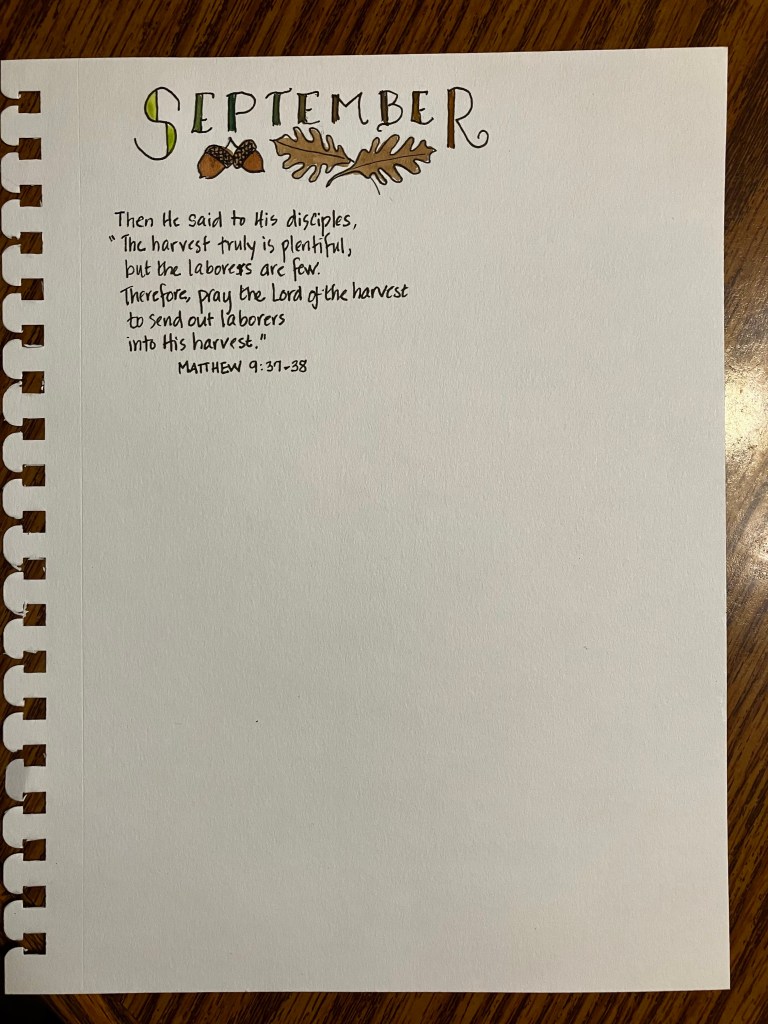 SEPTEMBER
Then He said to His disciples,
"The harvest truly is plentiful,
but the laborers are few.
Therefore, pray the Lord of the harvest
to send out laborers
into His harvest."
MATTHEW 9:37-38